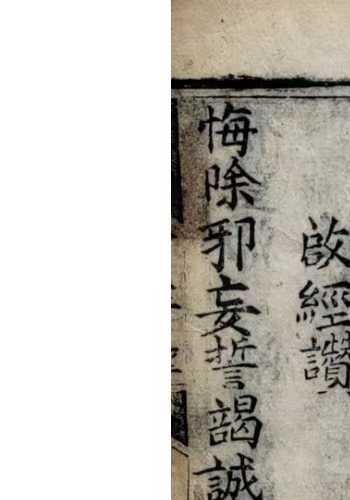 啟經讚
悔除邪妄誓謁誠